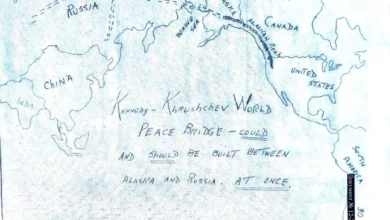 RUSSIA
CANADA
ALASKAN ROAD
CHINA
UNITED
STATES
INDIA
KENNEDY - KHRUSHCHEV WORLD
PEACE BRIDGE - COULD
AND SHOULD BE BUILT BETWEEN
ALASKA AND RUSSIA. AT ONCE.
SOUTH
AMERICA